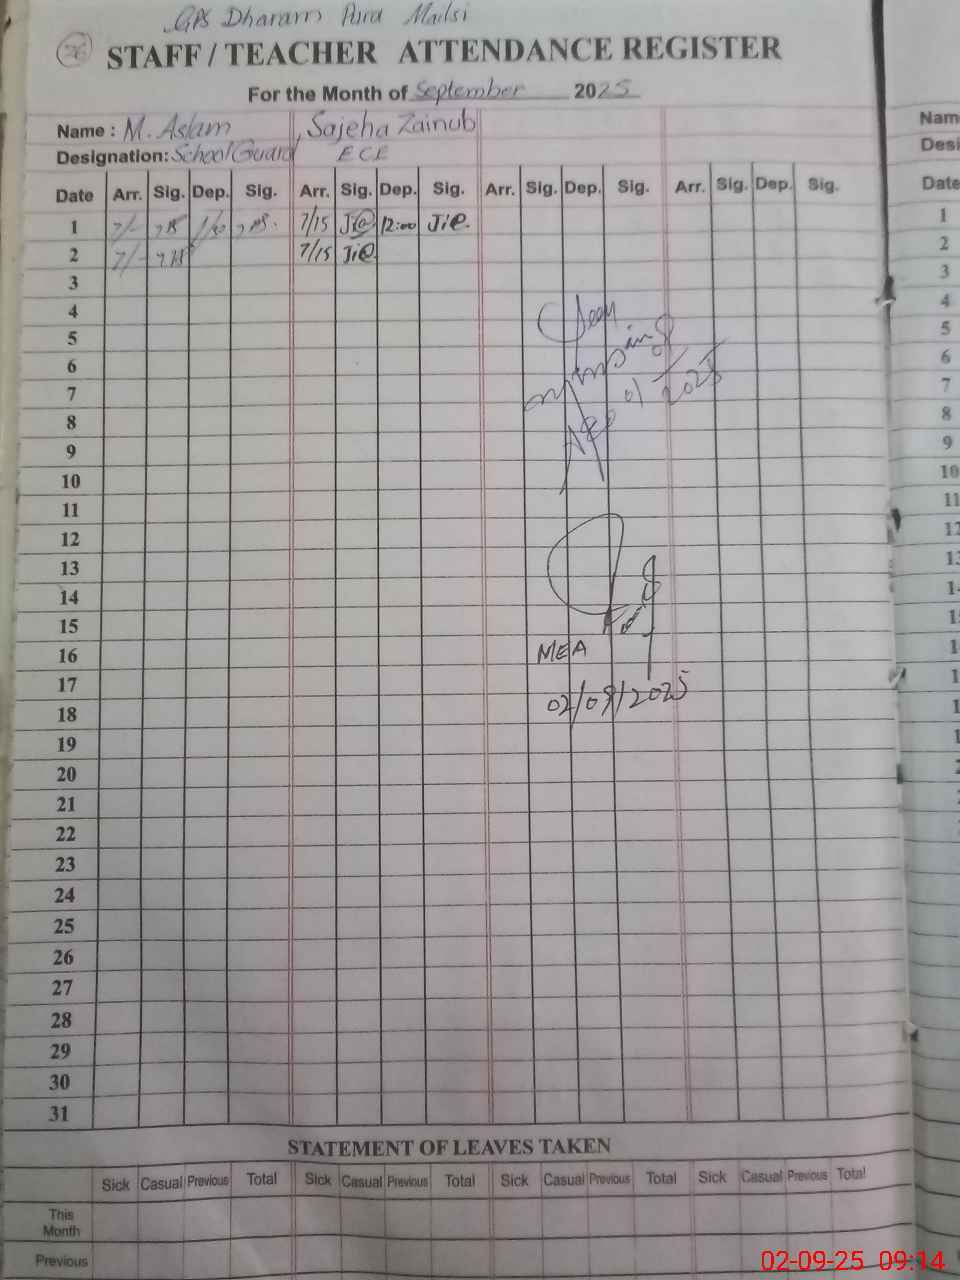 GPS Dharam Pura Mailsi
26 STAFF / TEACHER ATTENDANCE REGISTER
For the Month of September 2025
Name : M. Aslam Sajeha Zainub
Designation: School Guard ECE
Date Arr. Sig. Dep. Sig. Arr. Sig. Dep. Sig. Arr. Sig. Dep. Sig. Arr. Sig. Dep. Sig.
1 7/- 1/30 7/15 12:00
2 7/- 7/15
3
4
5
6
7
8
9
10
11
12
13
14
15
16
17
18
19
20
21
22
23
24
25
26
27
28
29
30
31
01 / 2025
MEA
02/09/2025
STATEMENT OF LEAVES TAKEN
Sick Casual Previous Total Sick Casual Previous Total Sick Casual Previous Total Sick Casual Previous Total
This
Month
Previous
Nam
Desi
Date
1
2
3
4
5
6
7
8
9
10
11
12
13
02-09-25 09:14